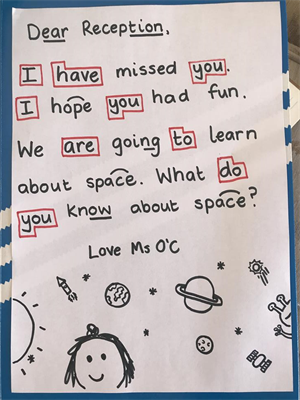 Dear Reception,
I have missed you.
I hope you had fun.
We are going to learn
about space. What do
you know about space?
Love Ms O'C